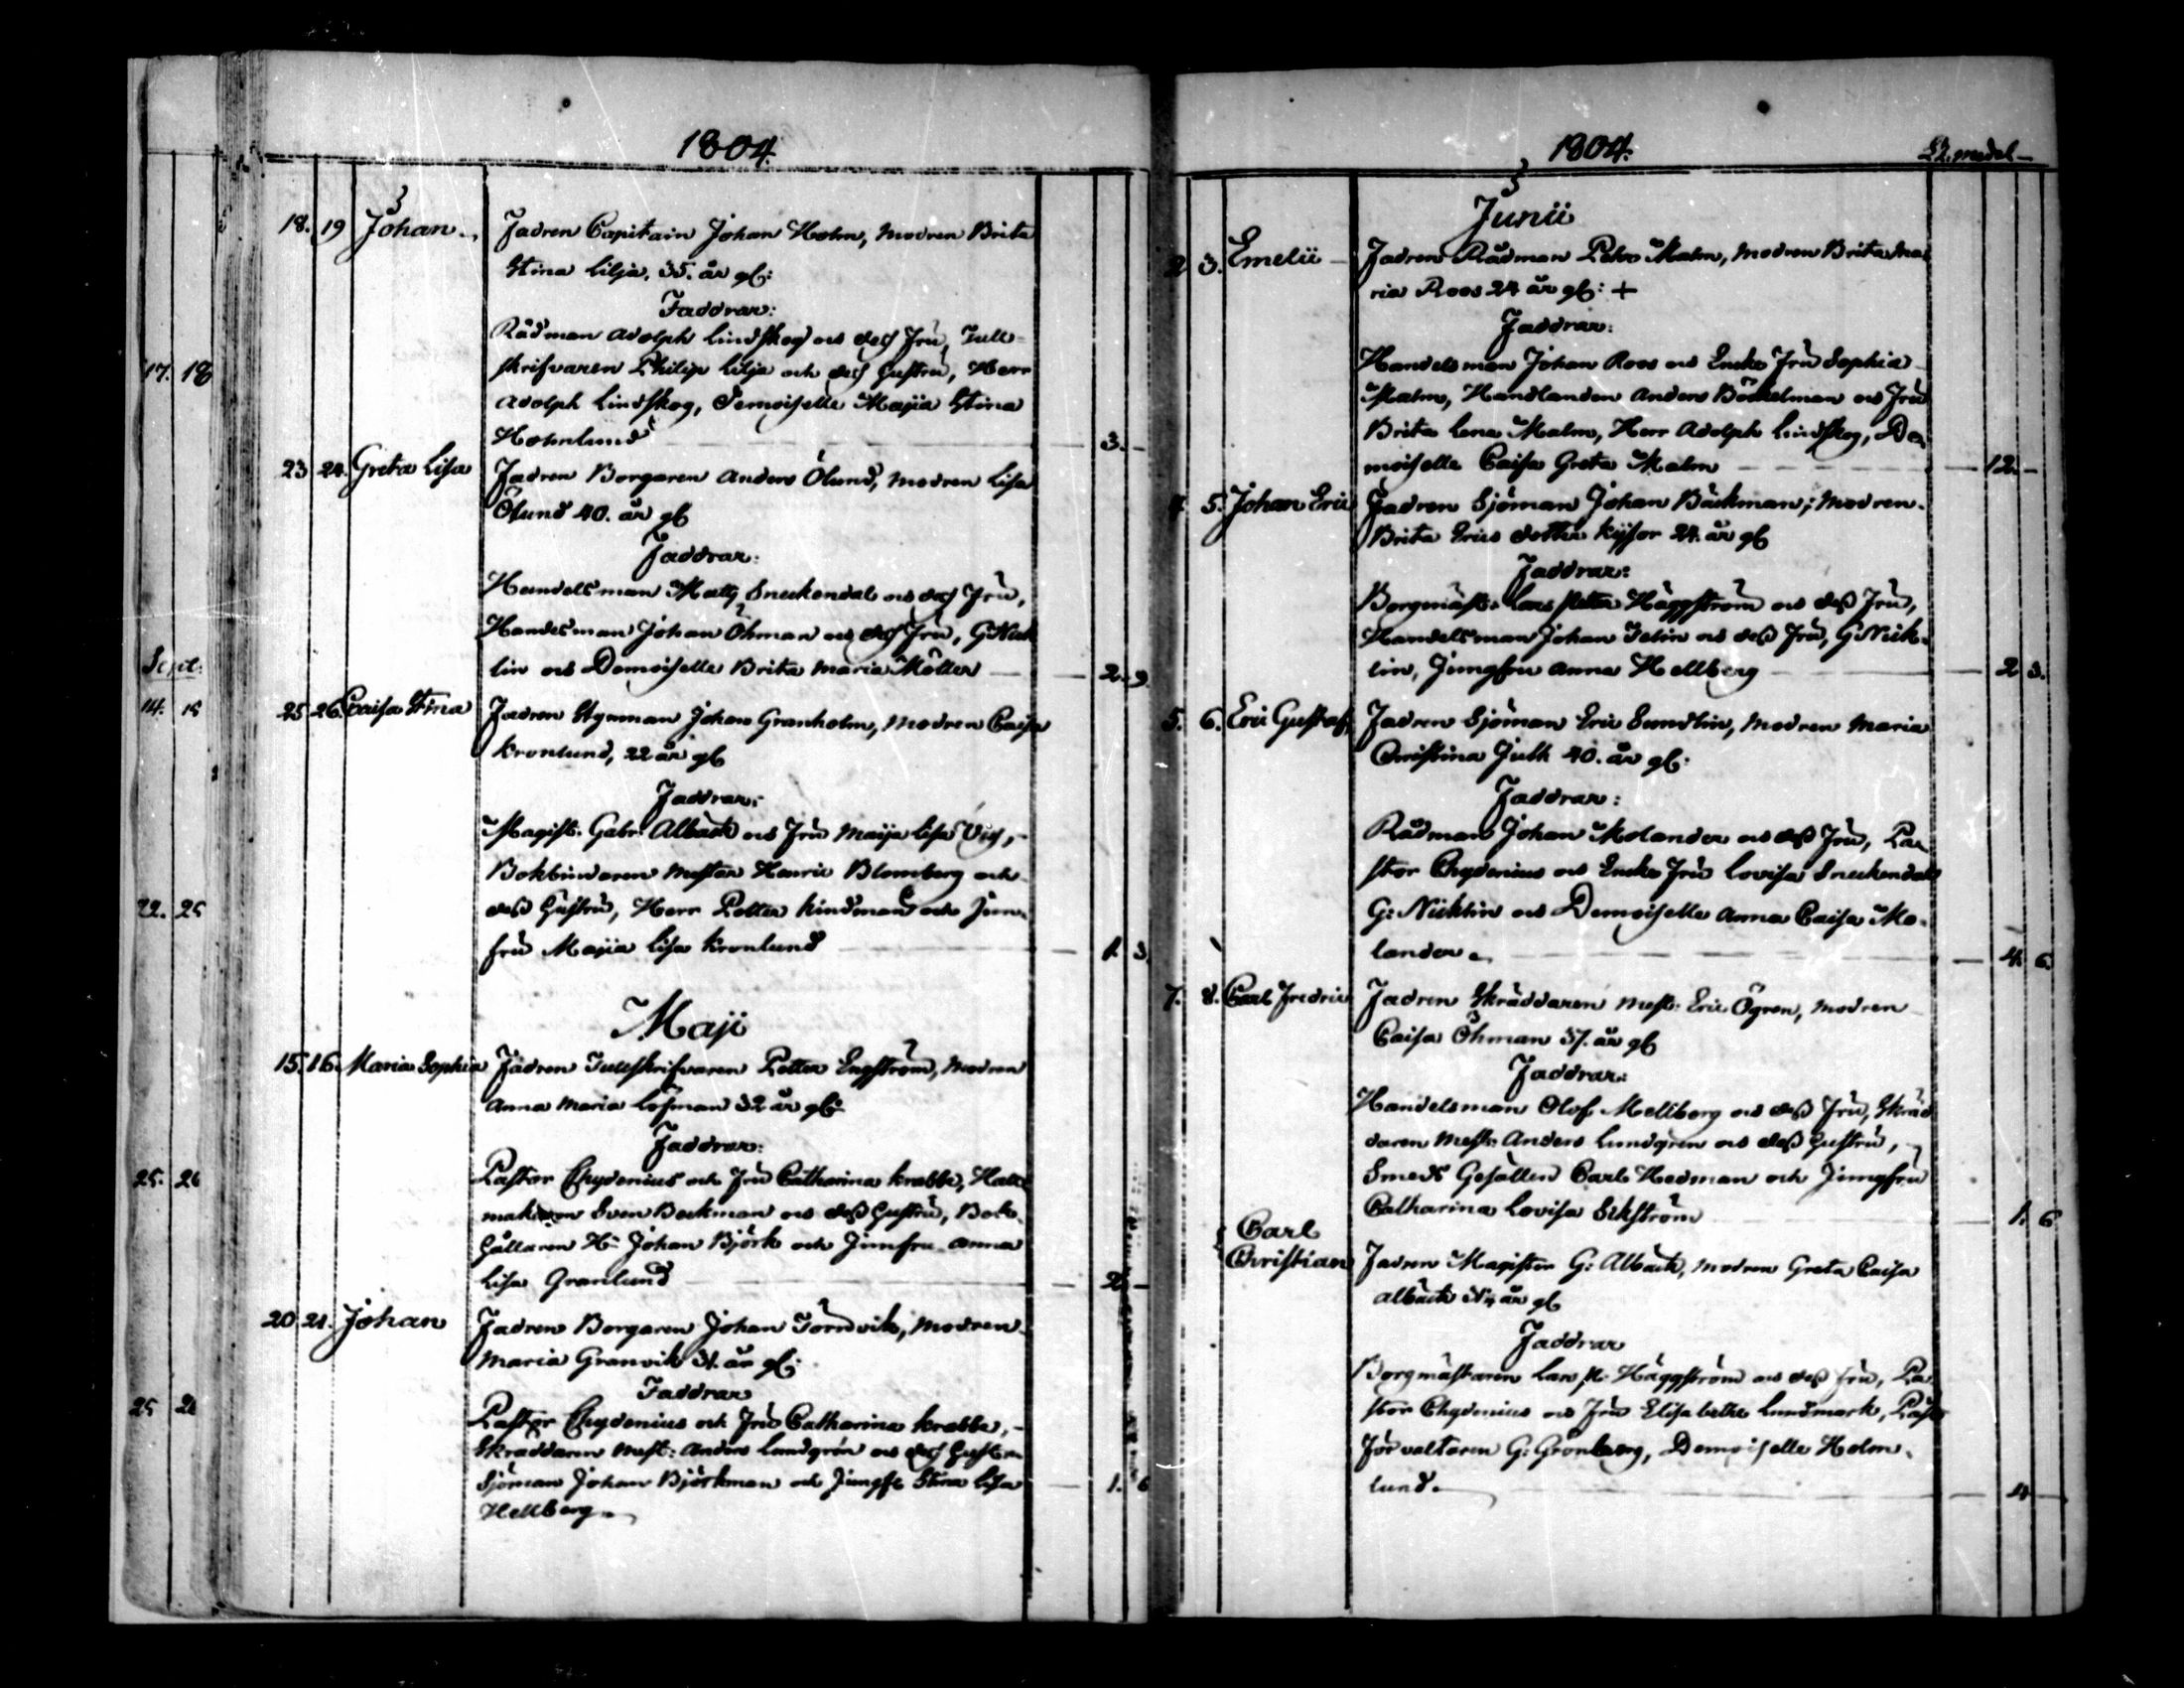 1804.
18. 19 Johan. Fadren Capitain Johan Holm, modren Brita
Stina Lilja, 35. år gl:
Faddrar:
Rådman Adolph Lindskog och dess Fru, Tull-
skrifvaren Philip Lilja och dess Hustru, Herr
Adolph Lindskog, Demoiselle Majia Stina
Holmlund 3. -
23 24. Greta Lisa Fadren Borgaren Anders Ölund, modren Lisa
Ölund 40. år gl
Faddrar:
Handelsman Matts Sneckendal och dess Fru,
Handesman Johan Öhman och dess Fru, G: Nick
lin och Demoiselle Brita Maria Möller 2. 9.
25 26. Caisa Stina Fadren Styrman Johan Granholm, modren Caisa
Kronlund, 22 år gl
Faddrar:
Magist. Gabr. Albäck och Fru Maija Lisa
Bokbindaren Mester Henric Blomberg och
dess Hustru, Herr Petter Lindman och Jun-
fru Majia Lisa Kronlund 1. 3.
Maji
15. 16. Maria Sophia Fadren Tullskrifvaren Petter Engström, modren
Anna Maria Löfman 32 år gl:
Faddrar:
Pastor Chydenius och Fru Catharina Krabbe, Hatt
makaren Sven Beckman och dess Hustru, Bok-
hållaren H: Johan Björk och Jumfru Anna
Lisa Granlund 2. -
20 21. Johan Fadren Borgaren Johan Törnvik, modren
Maria Granvik 31. år gl:
Faddrar
Pastor Chydenius och Fru Catharina Krabbe,
Skräddaren Mest: Anders Lundgrén och dess Hustru
Sjöman Johan Björkman och Jungfr Stina Lisa
Hellberg. 1. 6
17. 18
Sept:
14. 15
22. 25
25. 26
25
1804.
medel
Junii
2 3. Emelie Fadren Rådman Petter Malm, modren Brita Ma
ria Roos 24 år gl: +
Faddrar:
Handelsman Johan Roos och Encke Fru Sophia
Malm, Handlanden Anders Böckelman och Fru
Brita Lena Malm, Herr Adolph Lindskog, De-
moiselle Caisa Greta Malm 12. -
4 5. Johan Eric Fadren Sjöman Johan Bäckman; Modren
Brita Erics dotter 24. år gl
Faddrar:
Borgmäst. Lars Petter Häggström och dess Fru,
Handelsman Johan och dess Fru, G: Nick-
lin, Jungfru Anna Hellberg 2 3.
5. 6. Eric Gustaf, Fadren Sjöman Eric Sundlin, modren Maria
Christina 40. år gl:
Faddrar:
Rådman Johan Molander och dess Fru, Pa-
stor Chydenius och Encke Fru Lovisa Sneckendal
G: Nicklin och Demoiselle Anna Caisa Mo-
lander. 4. 6.
7. 8. Carl Fredric Fadren Skräddaren Mest: Eric Ögren, modren
Caisa Öhman 37. år gl
Faddrar:
Handelsman Olof Mellberg och dess Fru, Skräd
daren Mest: Anders Lundgren och dess Hustru,
Smeds Gesällen Carl Hedman och Jungfru
Catharina Lovisa Ekström 1. 6
Carl
Christian Fadren Magister G: Albäck, modren Greta Caisa
Albäck år gl
Faddrar
Borgmästaren Lars Pt: Häggström och dess Fru, Pa
stor Chydenius och Fru Elisabeth Lundmark,
Förvaltaren G: Grönberg, Demoiselle Holm-
lund. 4